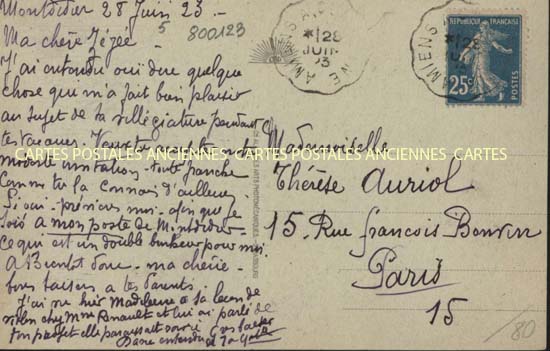 Montdidier 28 Juin 23 -
5 800123
Ma chère Zézée -
J'ai entendu oui dire quelque
chose qui m'a fait bien plaisir
au sujet de ta villégiature pendant
tes vacances
modeste invitation - toute franche
Comme tu la connais d'ailleurs.
Si oui - préviens moi - afin que je
sois à mon poste de Montdidier
ce qui est un double bonheur pour moi.
A Bientôt donc - ma chérie -
bons baisers à tes Parents.
J'ai vu hier Madeleine à sa leçon de
violon chez Mme Renault et lui ai parlé de
ton projet elle paraissait
Mademoiselle
Thérèse Auriol
15 Rue François Bonvin
Paris
15
AMIENS
*I28
JUIN
23
REPUBLIQUE FRANÇAISE
25c
POSTES
CARTES POSTALES ANCIENNES CARTES POSTALES ANCIENNES CARTES
/80